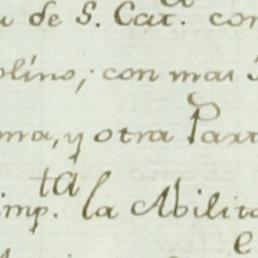 de S. Cat.ª con
olino; con mas
ma, y otra Part
imp.ta la Abilita